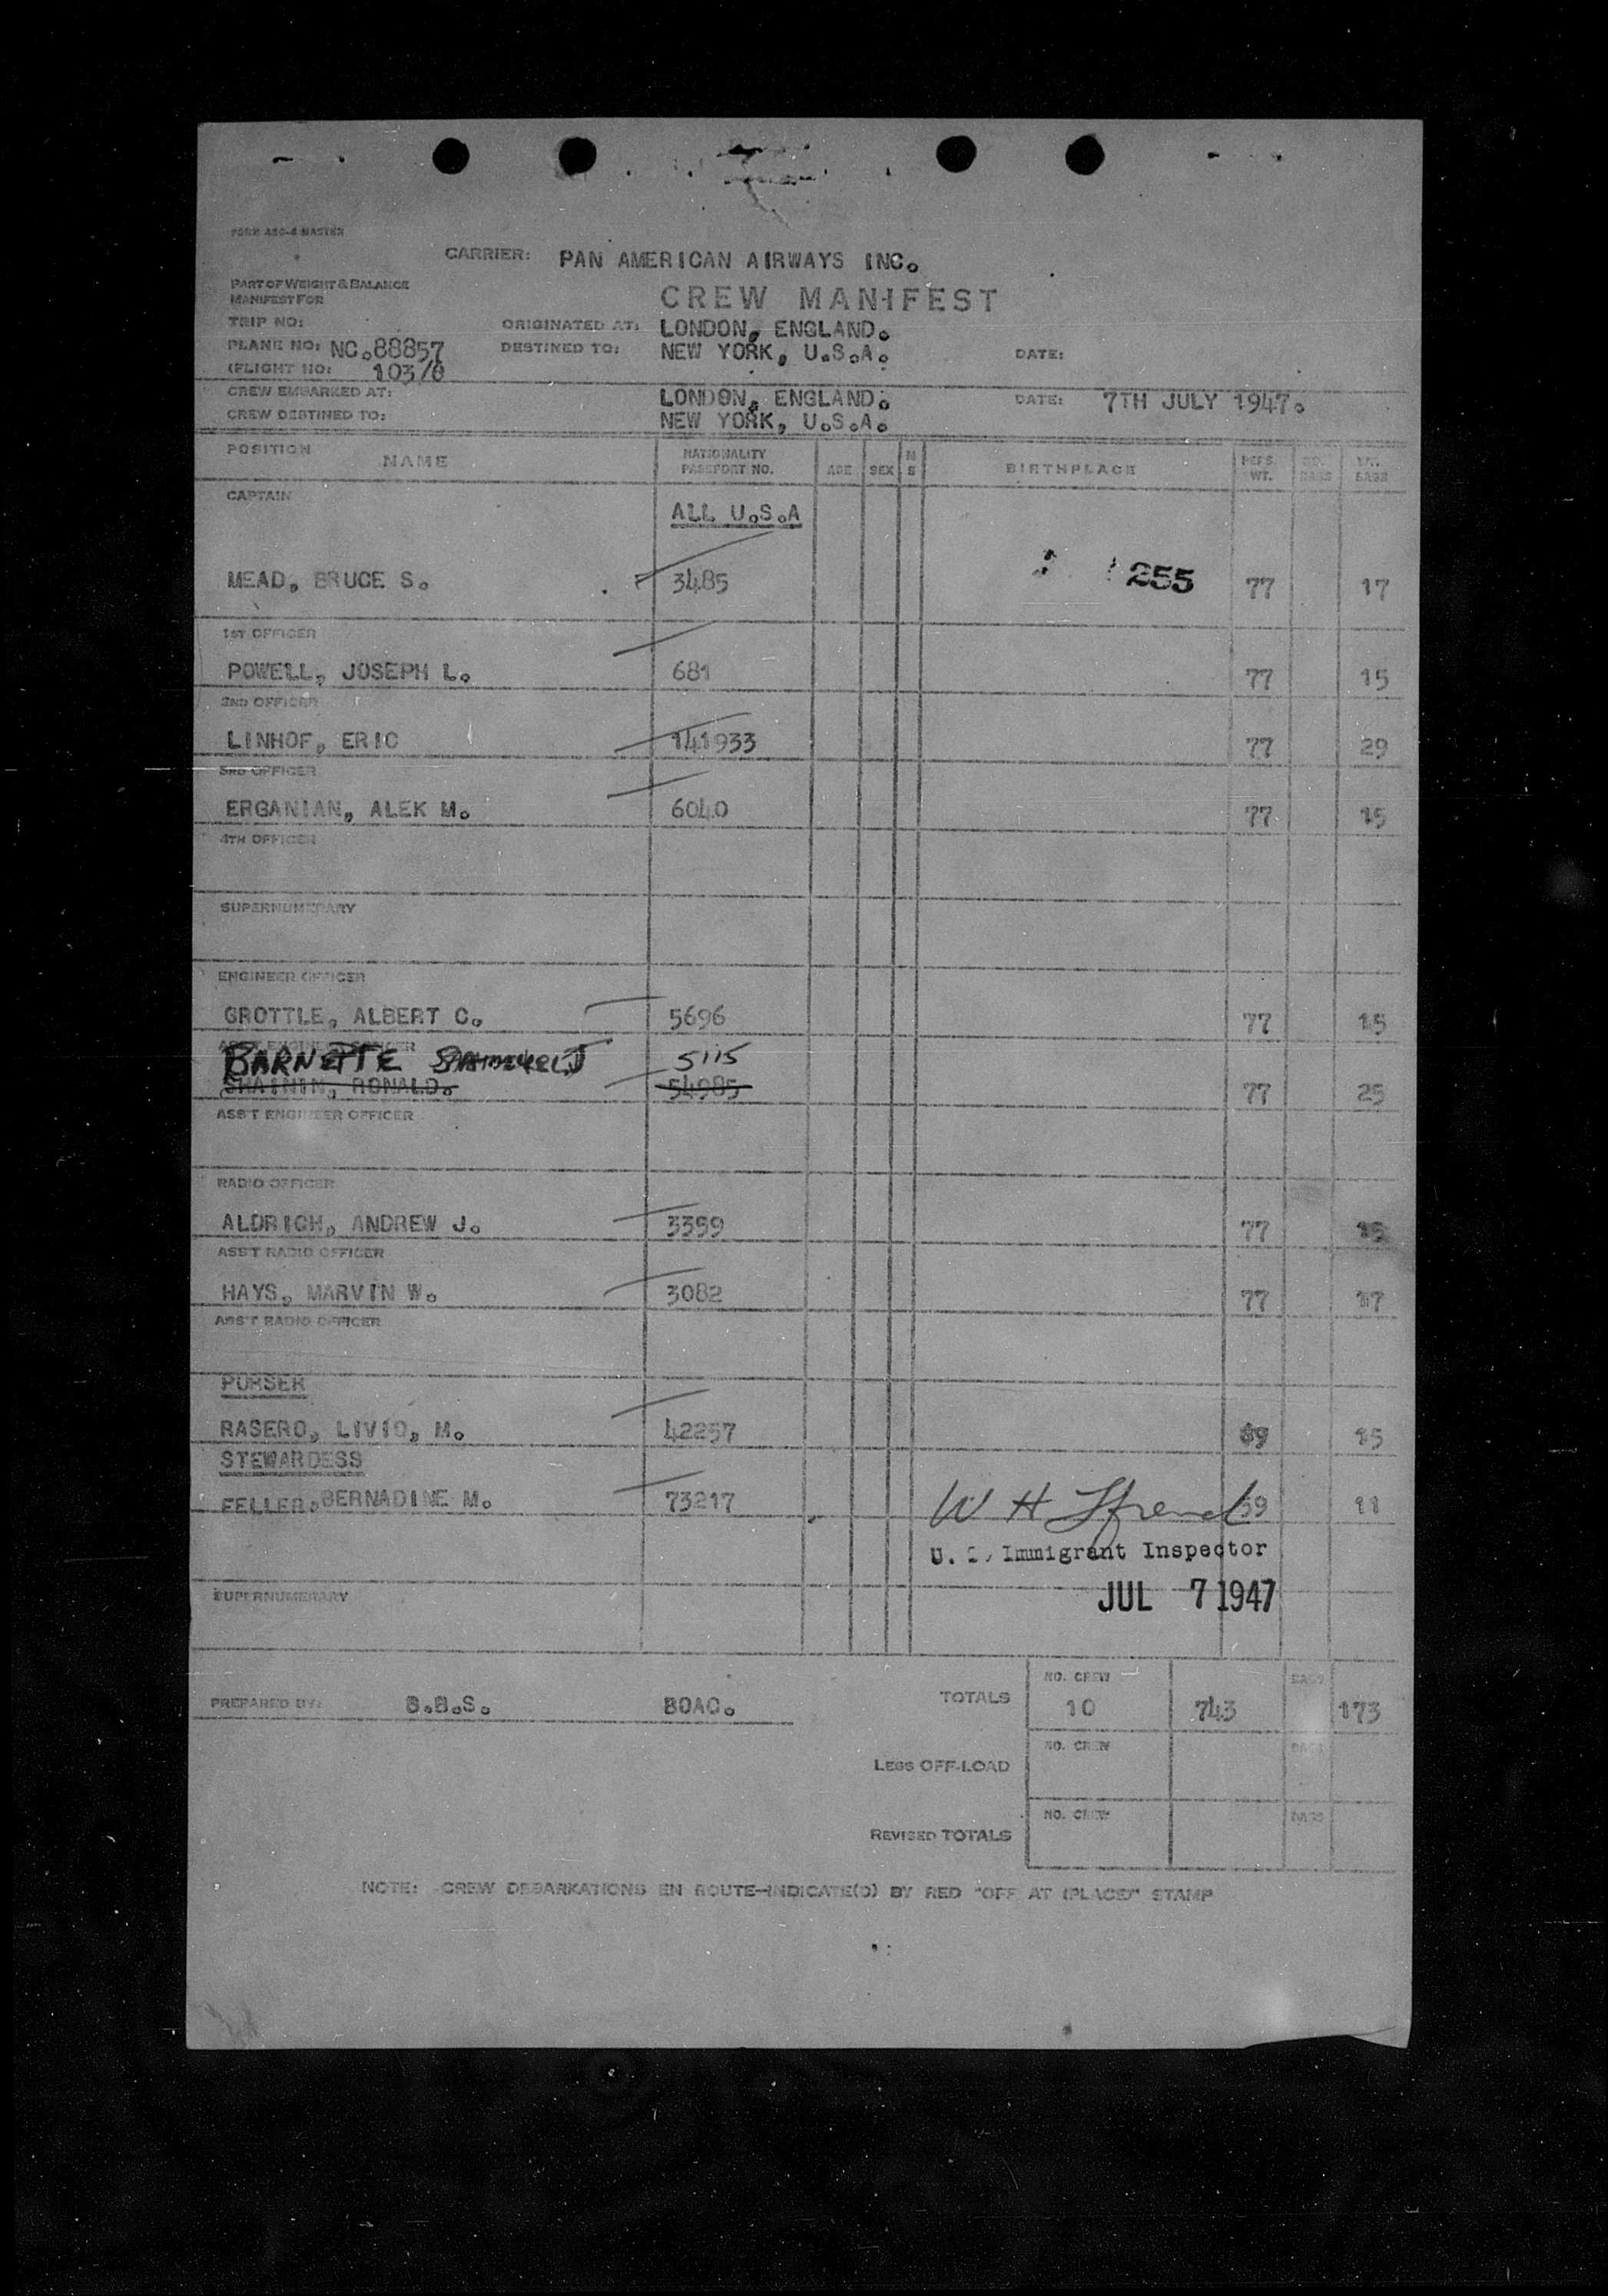 FORM ASO-4 MASTER
CARRIER: PAN AMERICAN AIRWAYS INC.
PART OF WEIGHT & BALANCE
MANIFEST FOR
CREW MANIFEST
TRIP NO: ORIGINATED AT: LONDON, ENGLAND.
PLANE NO: NC.88857 DESTINED TO: NEW YORK, U.S.A. DATE:
(FLIGHT NO: 103/6
CREW EMBARKED AT: LONDON, ENGLAND. DATE: 7TH JULY 1947.
CREW DESTINED TO: NEW YORK, U.S.A.
POSITION NAME NATIONALITY PASSPORT NO. AGE SEX M S BIRTHPLACE PERS. WT. NO. BAGS WT. BAGS
CAPTAIN
ALL U.S.A
MEAD, BRUCE S. 3485 255 77 17
1ST OFFICER
POWELL, JOSEPH L. 681 77 15
2ND OFFICER
LINHOF, ERIC 141933 77 29
3RD OFFICER
ERGANIAN, ALEK M. 6040 77 15
4TH OFFICER
SUPERNUMERARY
ENGINEER OFFICER
GROTTLE, ALBERT C. 5696 77 15
ASST ENGINEER OFFICER
BARNETTE 5115
SHAININ, RONALD. 54985 77 25
ASS'T ENGINEER OFFICER
RADIO OFFICER
ALDRICH, ANDREW J. 3359 77 15
ASS'T RADIO OFFICER
HAYS, MARVIN W. 3082 77 17
ASS'T RADIO OFFICER
PURSER
RASERO, LIVIO, M. 42257 69 15
STEWARDESS
FELLER, BERNADINE M. 73217 59 11
W H
U. S. Immigrant Inspector
JUL 7 1947
SUPERNUMERARY
PREPARED BY: B.B.S. BOAC. TOTALS NO. CREW 10 743 BAGS 173
LESS OFF-LOAD NO. CREW BAGS
REVISED TOTALS NO. CREW BAGS
NOTE: CREW DEBARKATIONS EN ROUTE-INDICATE(D) BY RED "OFF AT (PLACE)" STAMP